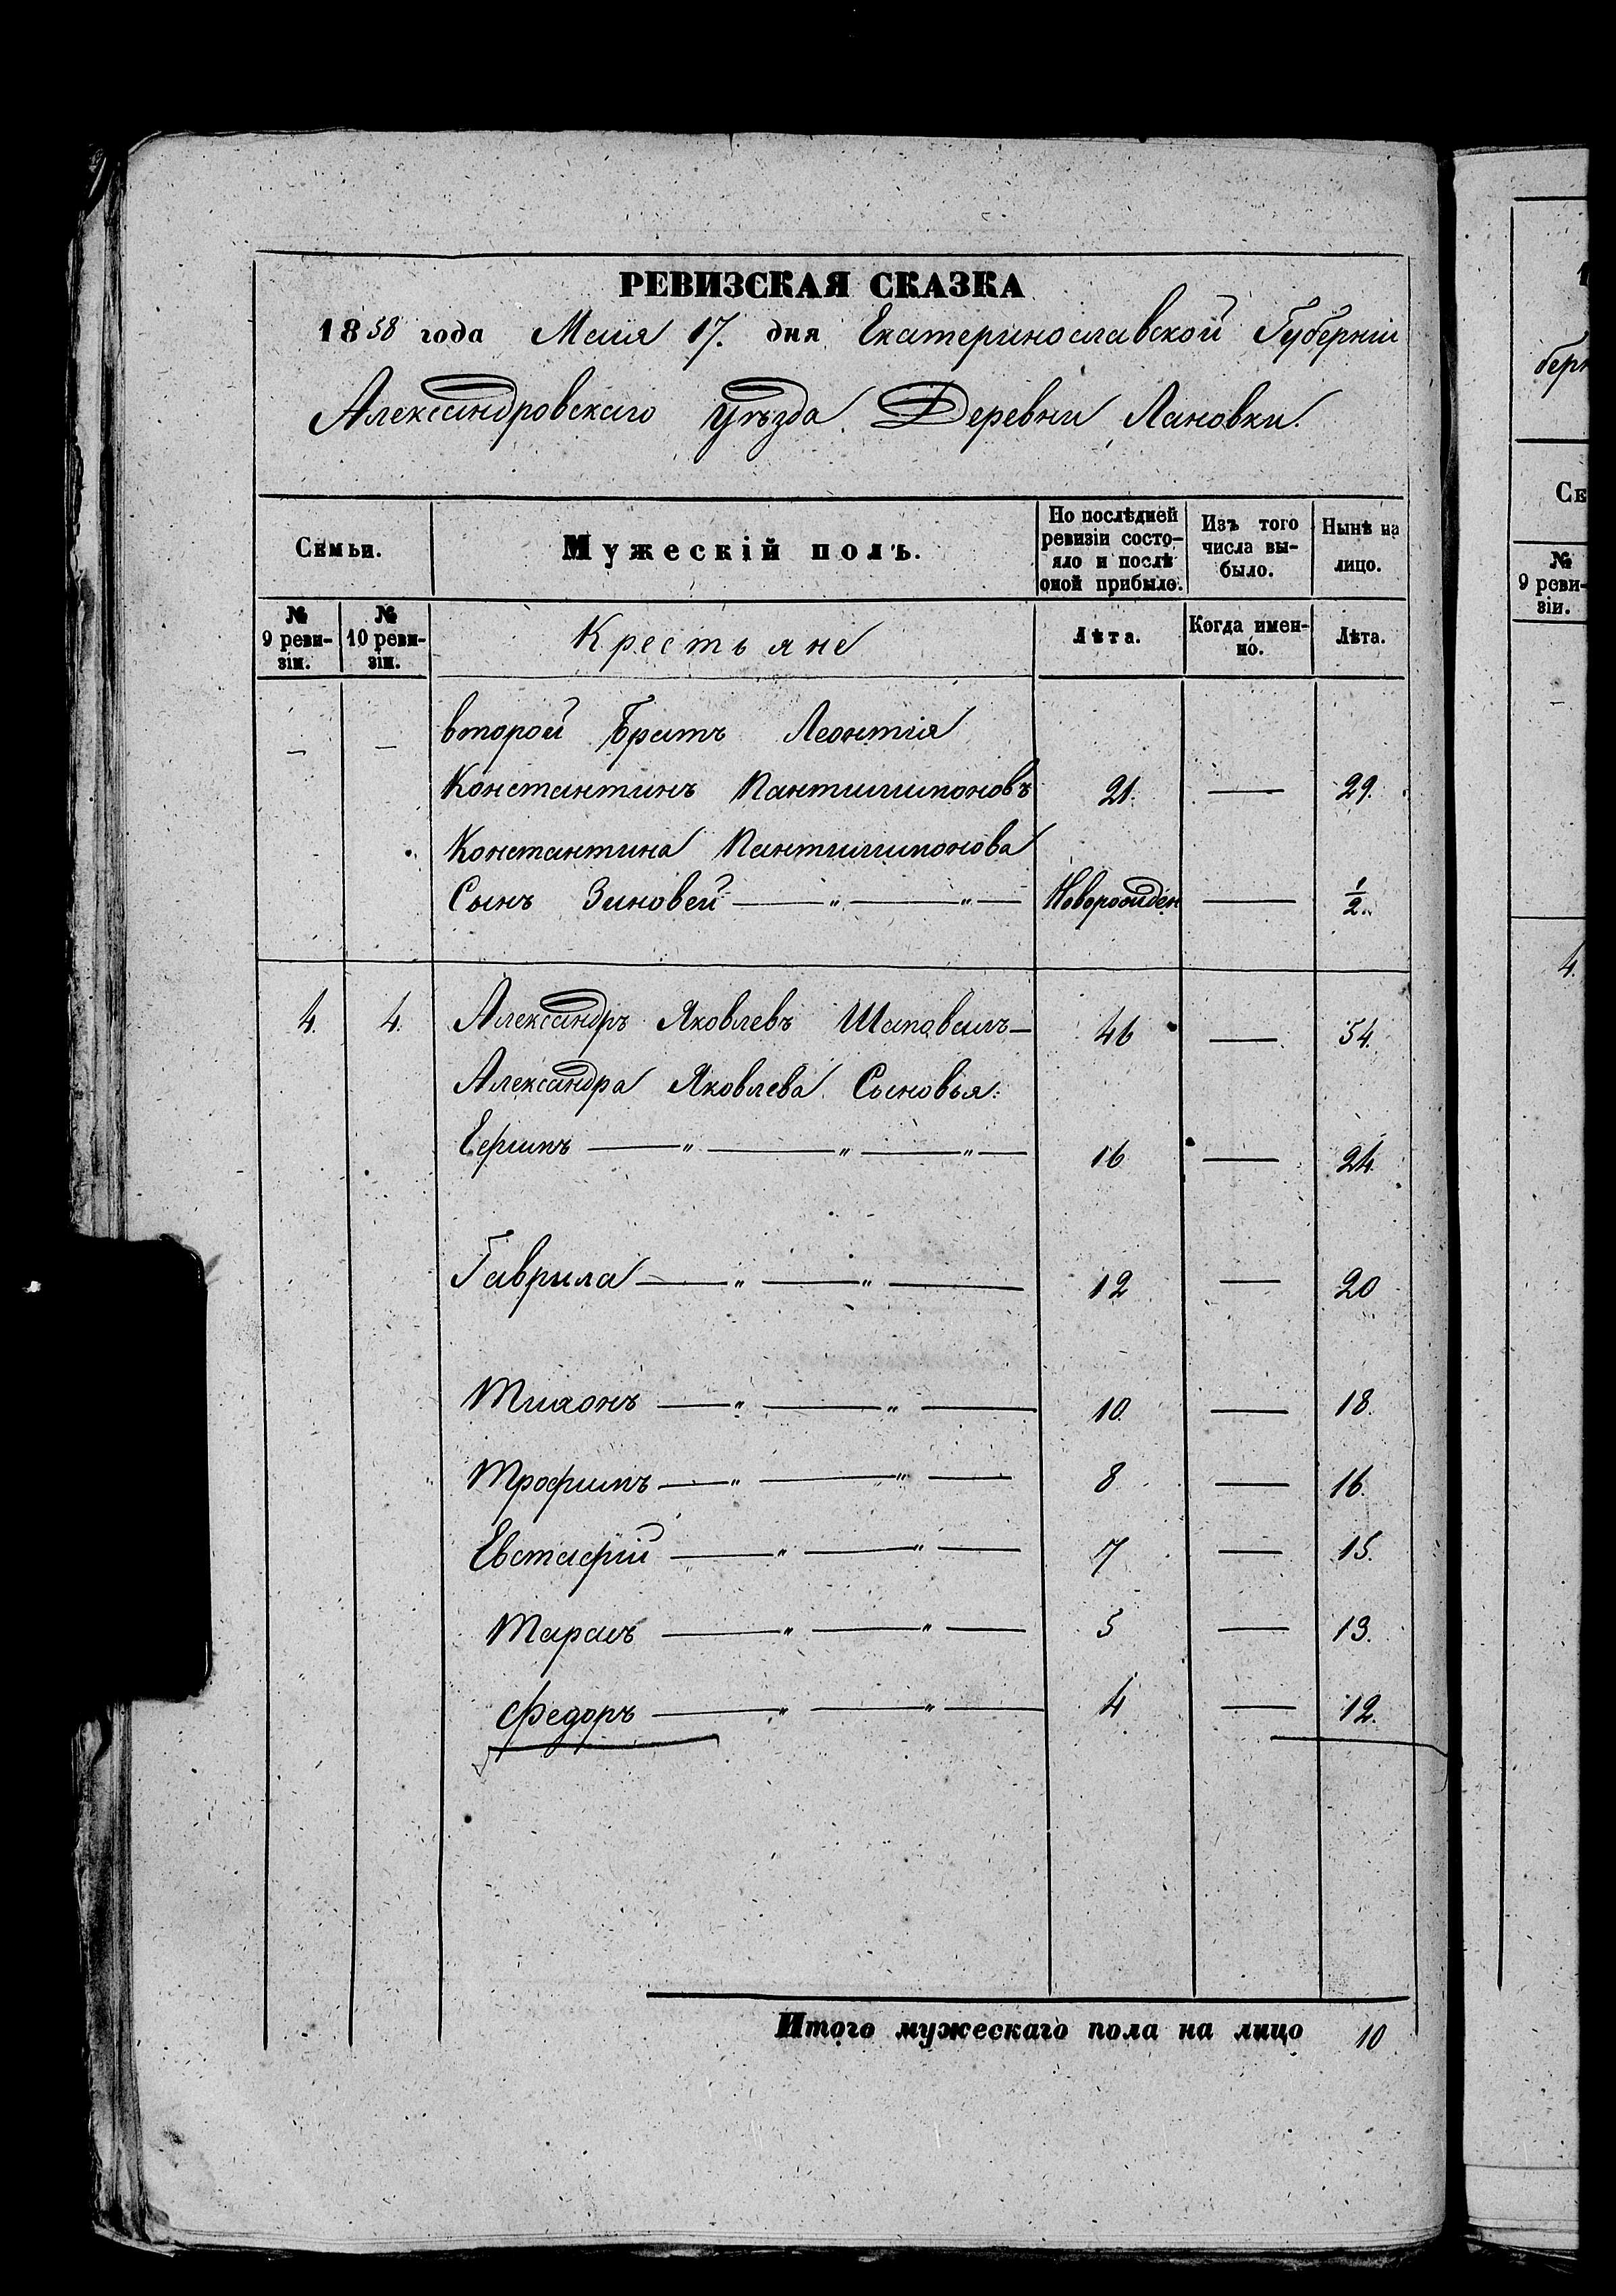 РЕВИЗСКАЯ СКАЗКА
1858 года Маия 17. дня Екатеринославской Губерніи
Александровскаго Уѣзда Деревни Лановки.
Семьи.
Мужескій полъ.
По послѣдней ревизіи состояло и послѣ оной прибыло.
Изъ того числа выбыло.
Нынѣ на лицо.
№ 9 ревизіи.
№ 10 ревизіи.
Крестьяне
Лѣта.
Когда именно.
Лѣта.
— — второй Братъ Леонтія
Константинъ Пантилимоновъ 21. — 29.
Константина Пантилимонова
Сынъ Зиновей — " — " — Новорожден — 1/2.
4. 4. Александръ Яковлевъ Шаповалъ — 46 — 54.
Александра Яковлева Сыновья:
Ефимъ — " — " — " — 16 — 24.
Гаврила — " — " — 12 — 20
Тихонъ — " — " — 10. — 18.
Трофимъ — " — " — 8 — 16.
Евстафій — " — " — 7 — 15.
Тарасъ — " — " — 5 — 13.
Федоръ — " — " — 4 — 12.
Итого мужескаго пола на лицо 10
бер
Се
№
9 реви-
зіи.
4.